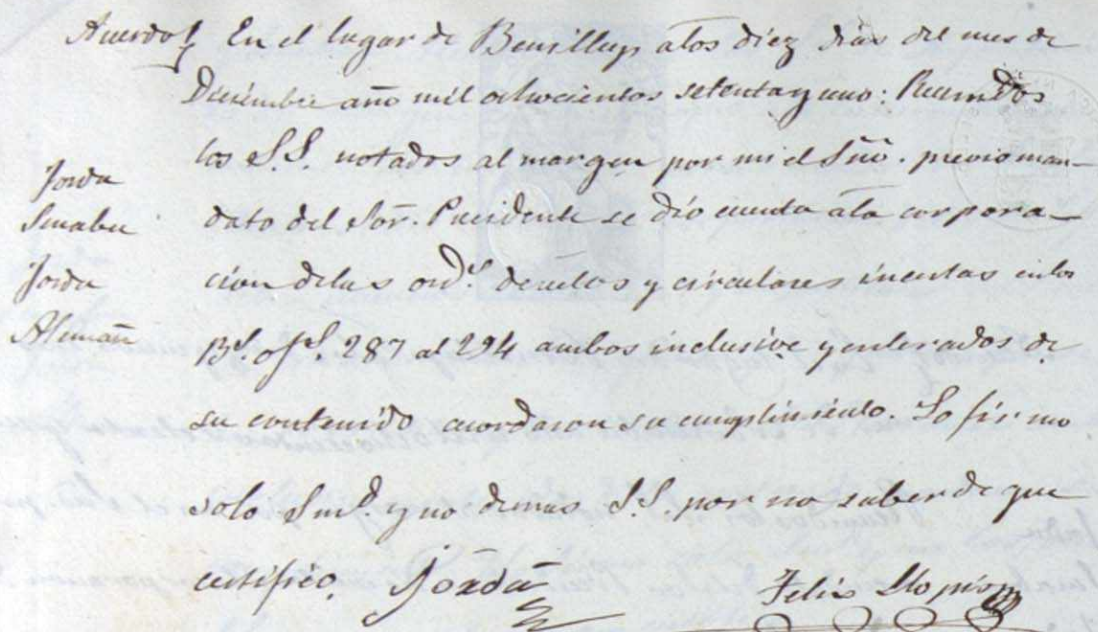 Acuerdo} En el lugar de Benillup a los diez dias del mes de
Diciembre año mil ochocientos setenta y uno: Reunidos
los S.S. notados al margen por mi el Srio. previo man-
dato del Sor. Presidente se dio cuenta a la corpora-
cion de las ords. decretos y circulares insertas en los
Bs. ofs. 287 al 294 ambos inclusive y enterados de
su contenido acordaron su cumplimiento. Lo firmo
solo Smd. y no demas S.S. por no saber de que
certifico.
Jorda
Jorda
Jorda
Alemañ
Felix Llopis